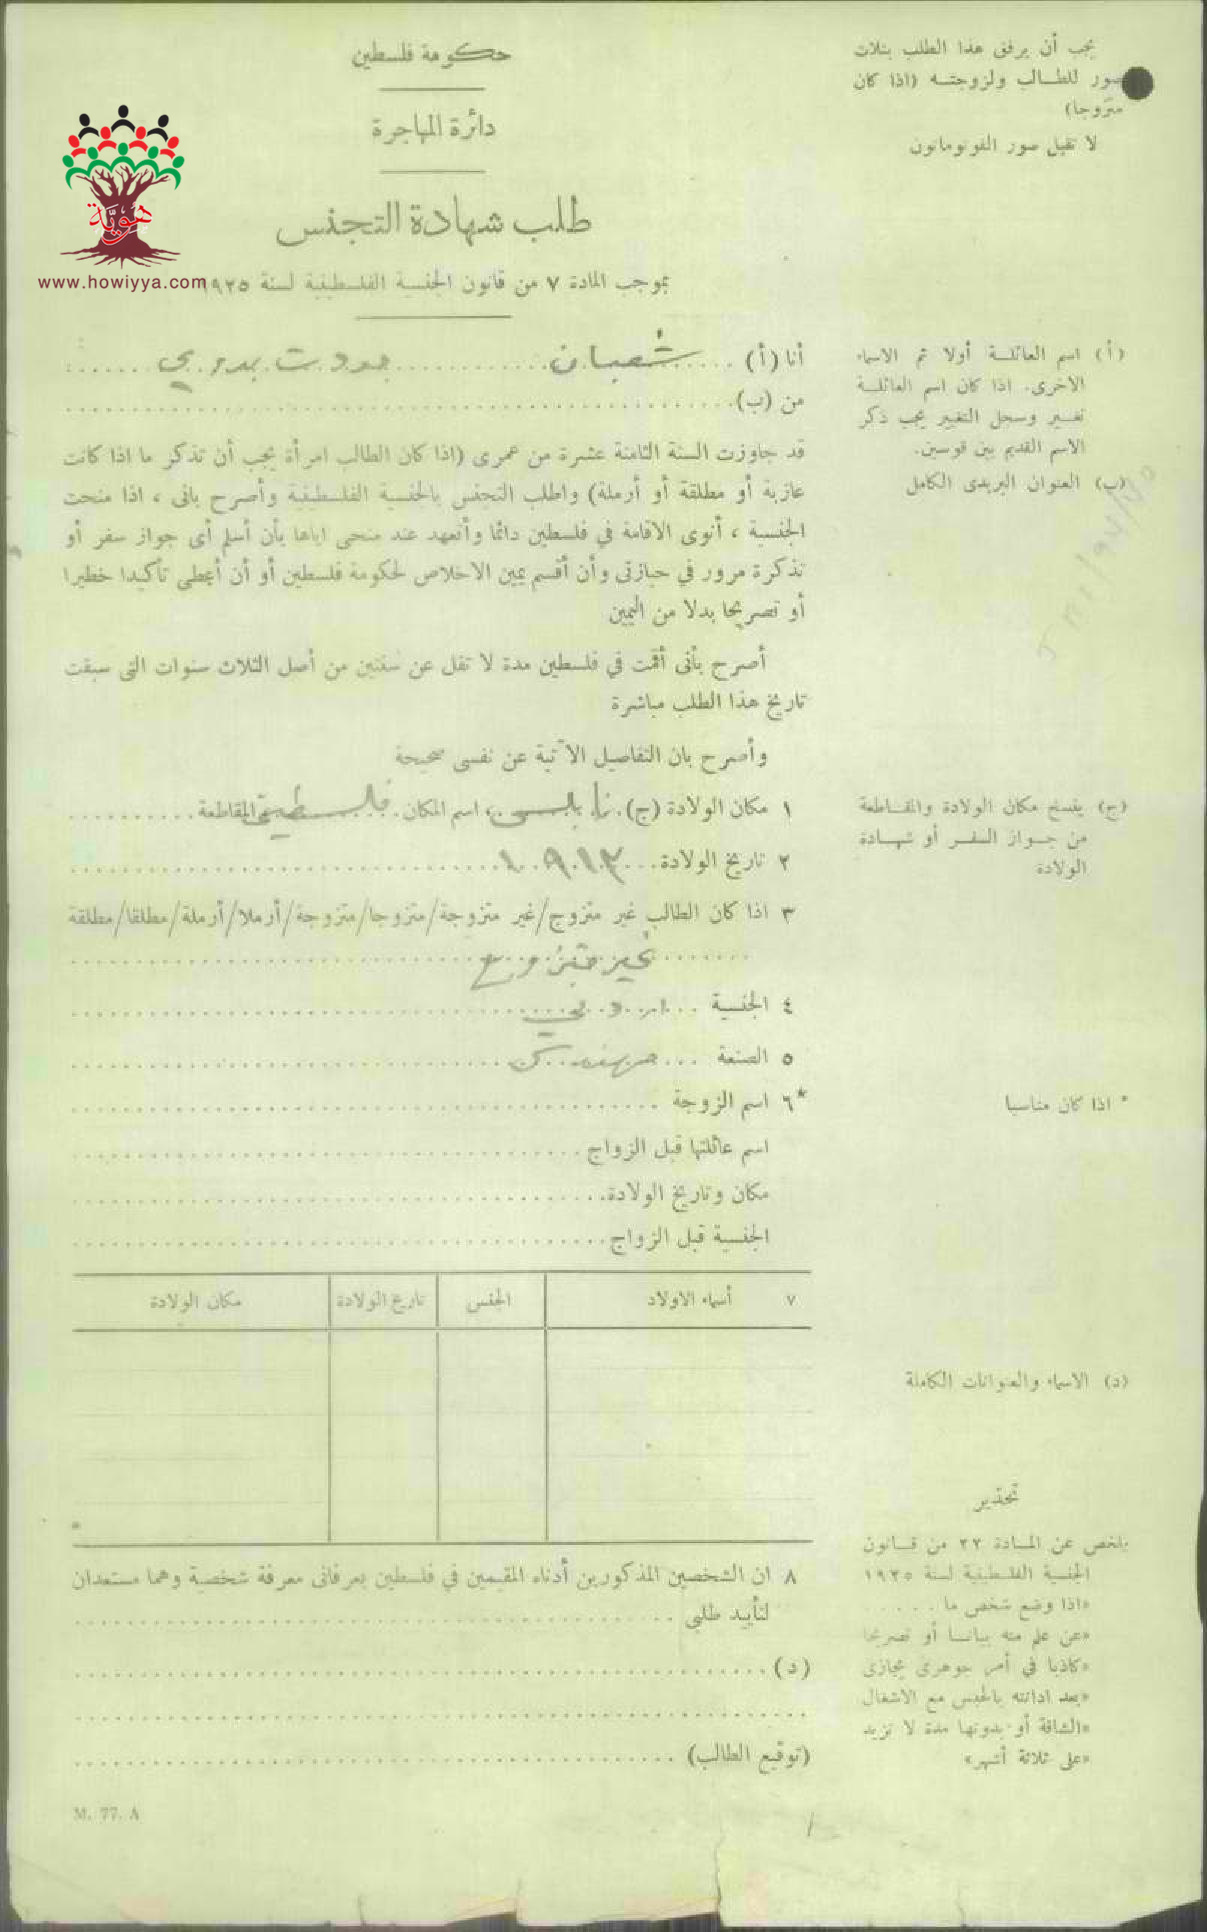 حكومة فلسطين
دائرة المهاجرة
طلب شهادة التجنس
بموجب المادة ٧ من قانون الجنسية الفلسطينية لسنة ١٩٢٥
هويّة
www.howiyya.com
يجب أن يرفق هذا الطلب بثلاث
صور للطالب ولزوجته (اذا كان
متزوجا)
لا تقبل صور الفوتوماتون
أنا (أ) شعبان جودت بدوي
من (ب)
قد جاوزت السنة الثامنة عشرة من عمرى (اذا كان الطالب امرأة يجب أن تذكر ما اذا كانت
عازبة أو مطلقة أو أرملة) واطلب التجنس بالجنسية الفلسطينية وأصرح بانى ، اذا منحت
الجنسية ، أنوى الاقامة في فلسطين دائما وأتعهد عند منحى اياها بأن أسلم أى جواز سفر أو
تذكرة مرور في حيازتى وأن أقسم يمين الاخلاص لحكومة فلسطين أو أن أعطى تأكيدا خطيرا
أو تصريحا بدلا من اليمين
أصرح بأنى أقمت في فلسطين مدة لا تقل عن سنتين من أصل الثلاث سنوات التى سبقت
تاريخ هذا الطلب مباشرة
وأصرح بان التفاصيل الآتية عن نفسى صحيحة
١ مكان الولادة (ج) نابلس ، اسم المكان فلسطين المقاطعة
٢ تاريخ الولادة ١٩١٣
٣ اذا كان الطالب غير متزوج/غير متزوجة/متزوجا/متزوجة/أرملا/أرملة/مطلقا/مطلقة
غير متزوج
٤ الجنسية
٥ الصنعة
*٦ اسم الزوجة
اسم عائلتها قبل الزواج
مكان وتاريخ الولادة
الجنسية قبل الزواج
٧ أسماء الاولاد الجنس تاريخ الولادة مكان الولادة
٨ ان الشخصين المذكورين أدناه المقيمين في فلسطين يعرفانى معرفة شخصية وهما مستعدان
لتأييد طلبى
(د)
(توقيع الطالب)
M. 77. A
(أ) اسم العائلة أولا ثم الاسماء
الاخرى. اذا كان اسم العائلة
تغير وسجل التغيير يجب ذكر
الاسم القديم بين قوسين.
(ب) العنوان البريدى الكامل
(ج) ينسخ مكان الولادة والمقاطعة
من جواز السفر أو شهادة
الولادة
* اذا كان مناسبا
(د) الاسماء والعنوانات الكاملة
تحذير
يلخص عن المادة ٢٢ من قانون
الجنسية الفلسطينية لسنة ١٩٢٥
«اذا وضع شخص ما . . . . . .
«عن علم منه بيانا أو تصريحا
«كاذبا في أمر جوهرى يجازى
«بعد ادانته بالحبس مع الاشغال
«الشاقة أو بدونها مدة لا تزيد
«على ثلاثة أشهر»